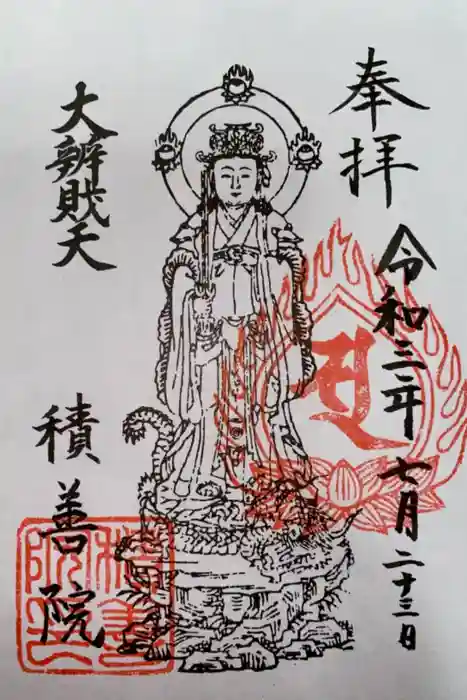 奉拝
令和三年七月二十三日
大辨財天
積善院
積善院印